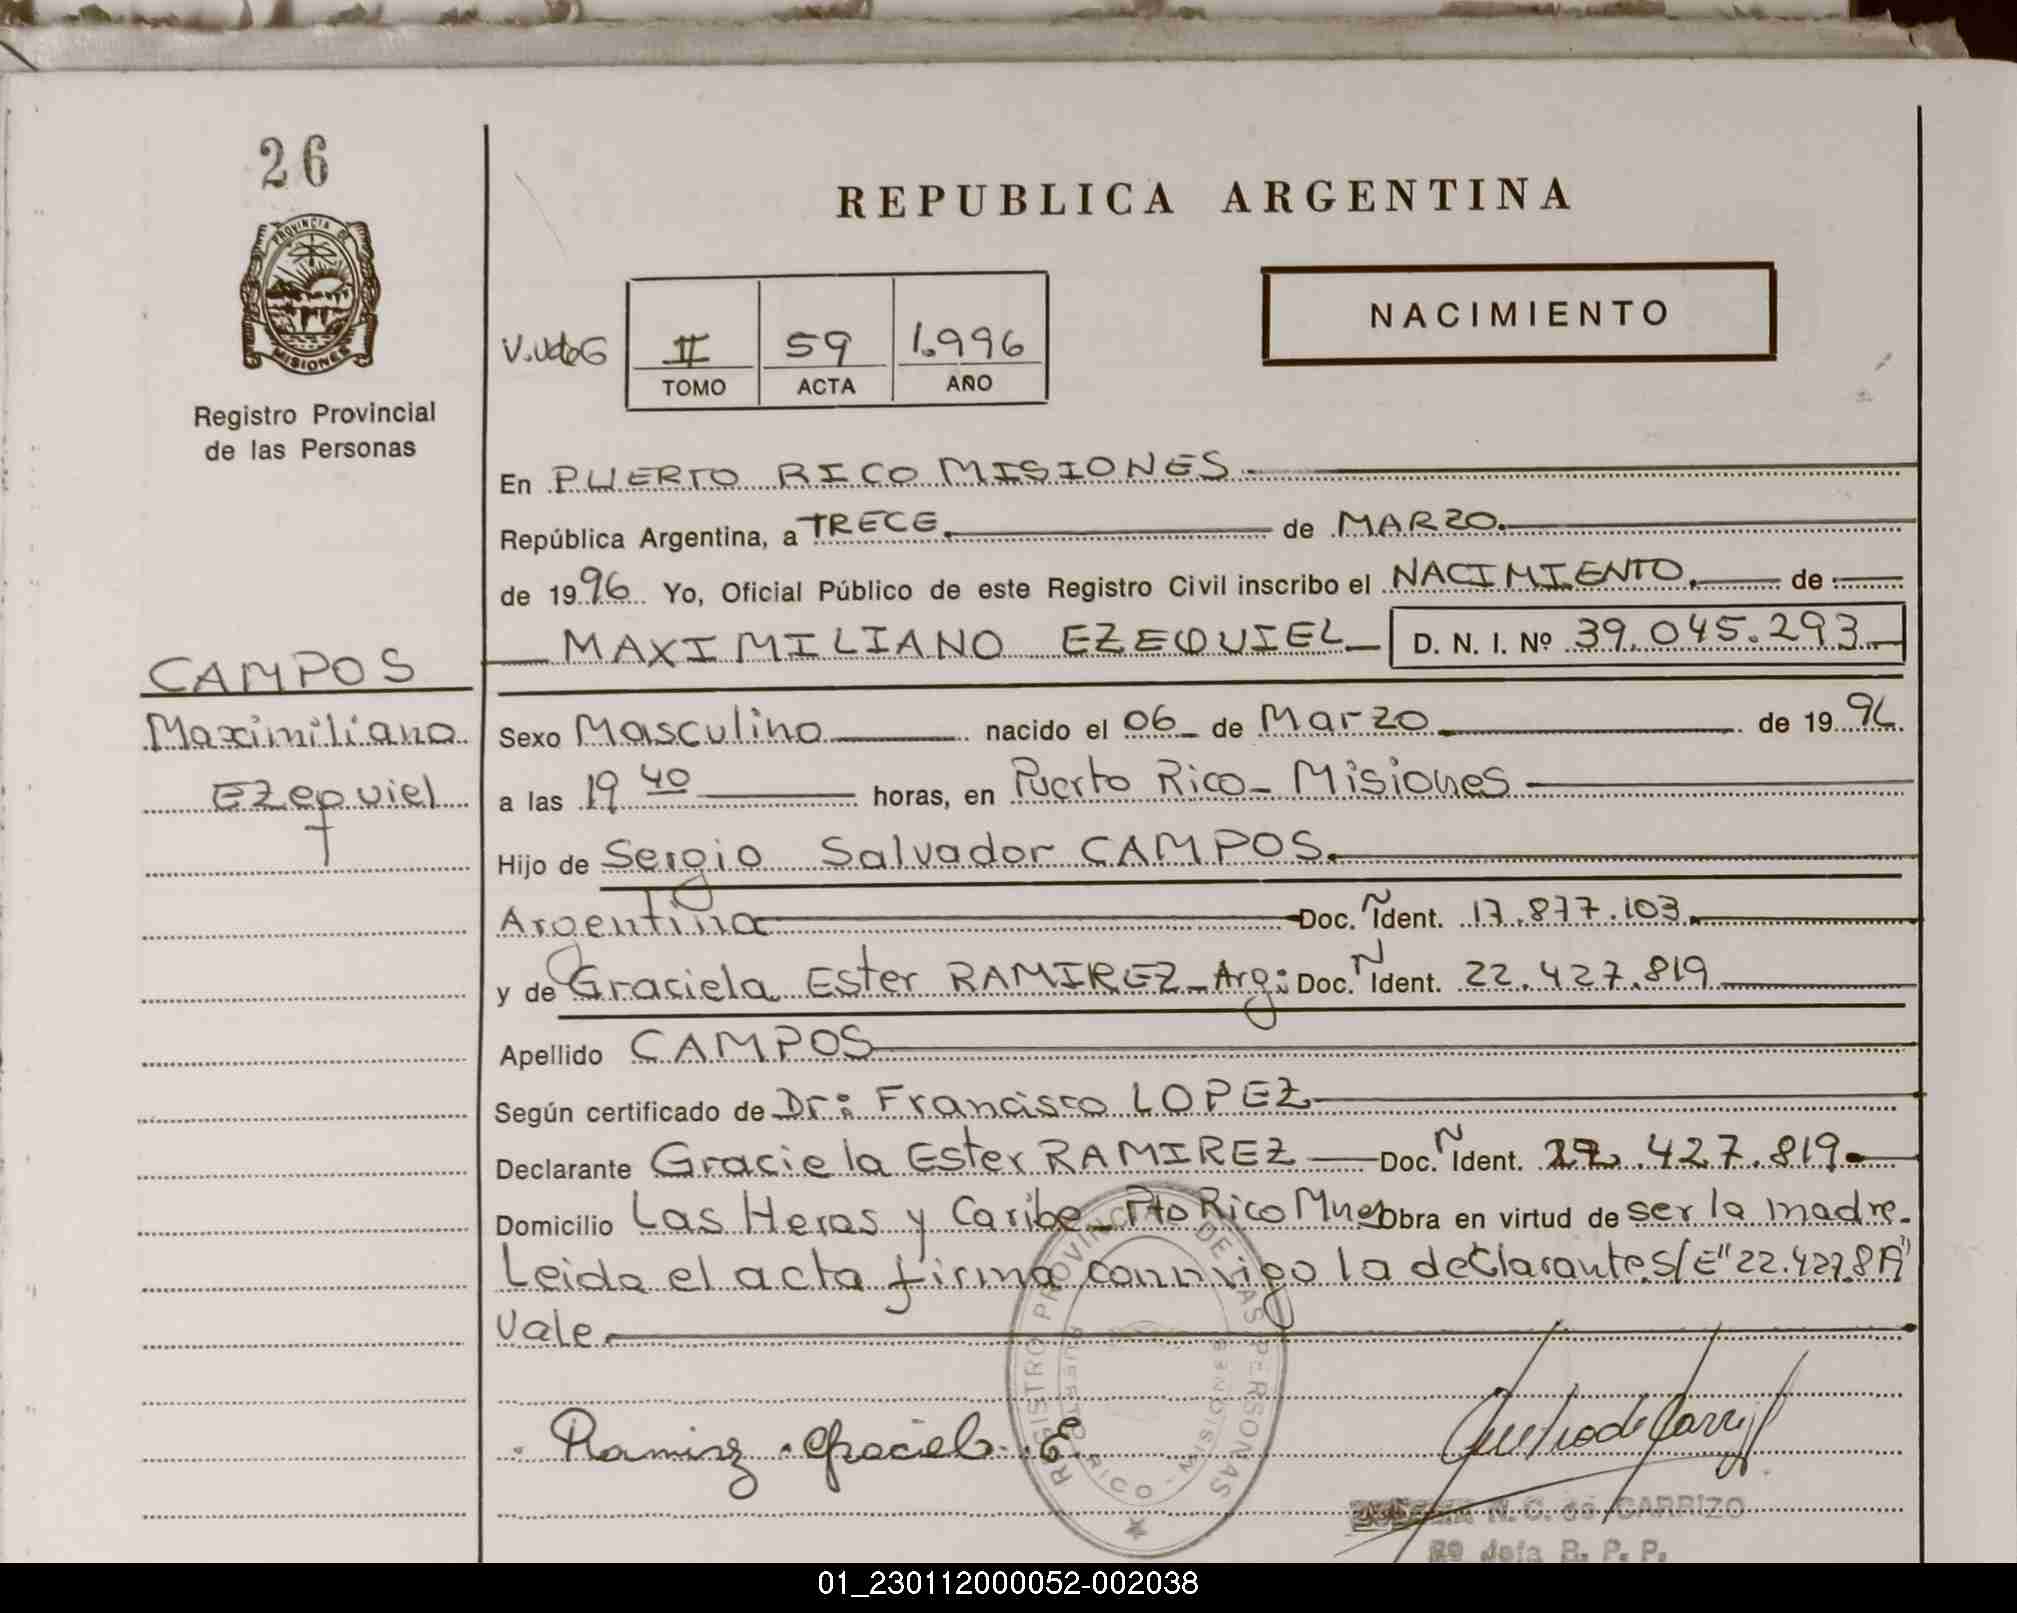 26
PROVINCIA DE
MISIONES
Registro Provincial
de las Personas
REPUBLICA ARGENTINA
NACIMIENTO
II 59 1.996
TOMO ACTA AÑO
En PUERTO RICO MISIONES
República Argentina, a TRECE de MARZO
de 1996 Yo, Oficial Público de este Registro Civil inscribo el NACIMIENTO de
MAXIMILIANO EZEQUIEL D. N. I. Nº 39.045.293
CAMPOS
Maximiliano
Ezequiel
Sexo Masculino nacido el 06 de Marzo de 1996
a las 19 40 horas, en Puerto Rico - Misiones
Hijo de Sergio Salvador CAMPOS
Argentina Doc. Ñ Ident. 17.877.103
y de Graciela Ester RAMIREZ - Arg: Doc. Ñ Ident. 22.427.819
Apellido CAMPOS
Según certificado de Dr: Francisco LOPEZ
Declarante Graciela Ester RAMIREZ Doc. Ñ Ident. 22.427.819
Domicilio Las Heras y Caribe - Pto Rico Mnes Obra en virtud de ser la madre.
Leida el acta firma connmigo la declarante S/E "22.427.819"
Vale
Ramirez Graciela E
REGISTRO PROVINCIAL DE LAS PERSONAS
PUERTO RICO - MISIONES
N. C. de CARRIZO
Jefa R. P. P.
01_230112000052-002038